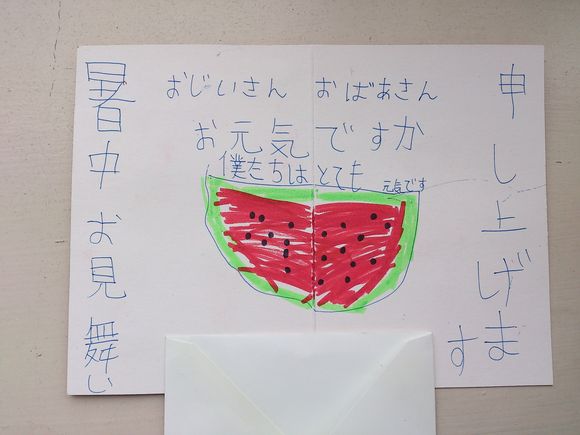 暑中お見舞い
申し上げます
おじいさん おばあさん
お元気ですか
僕たちはとても 元気です